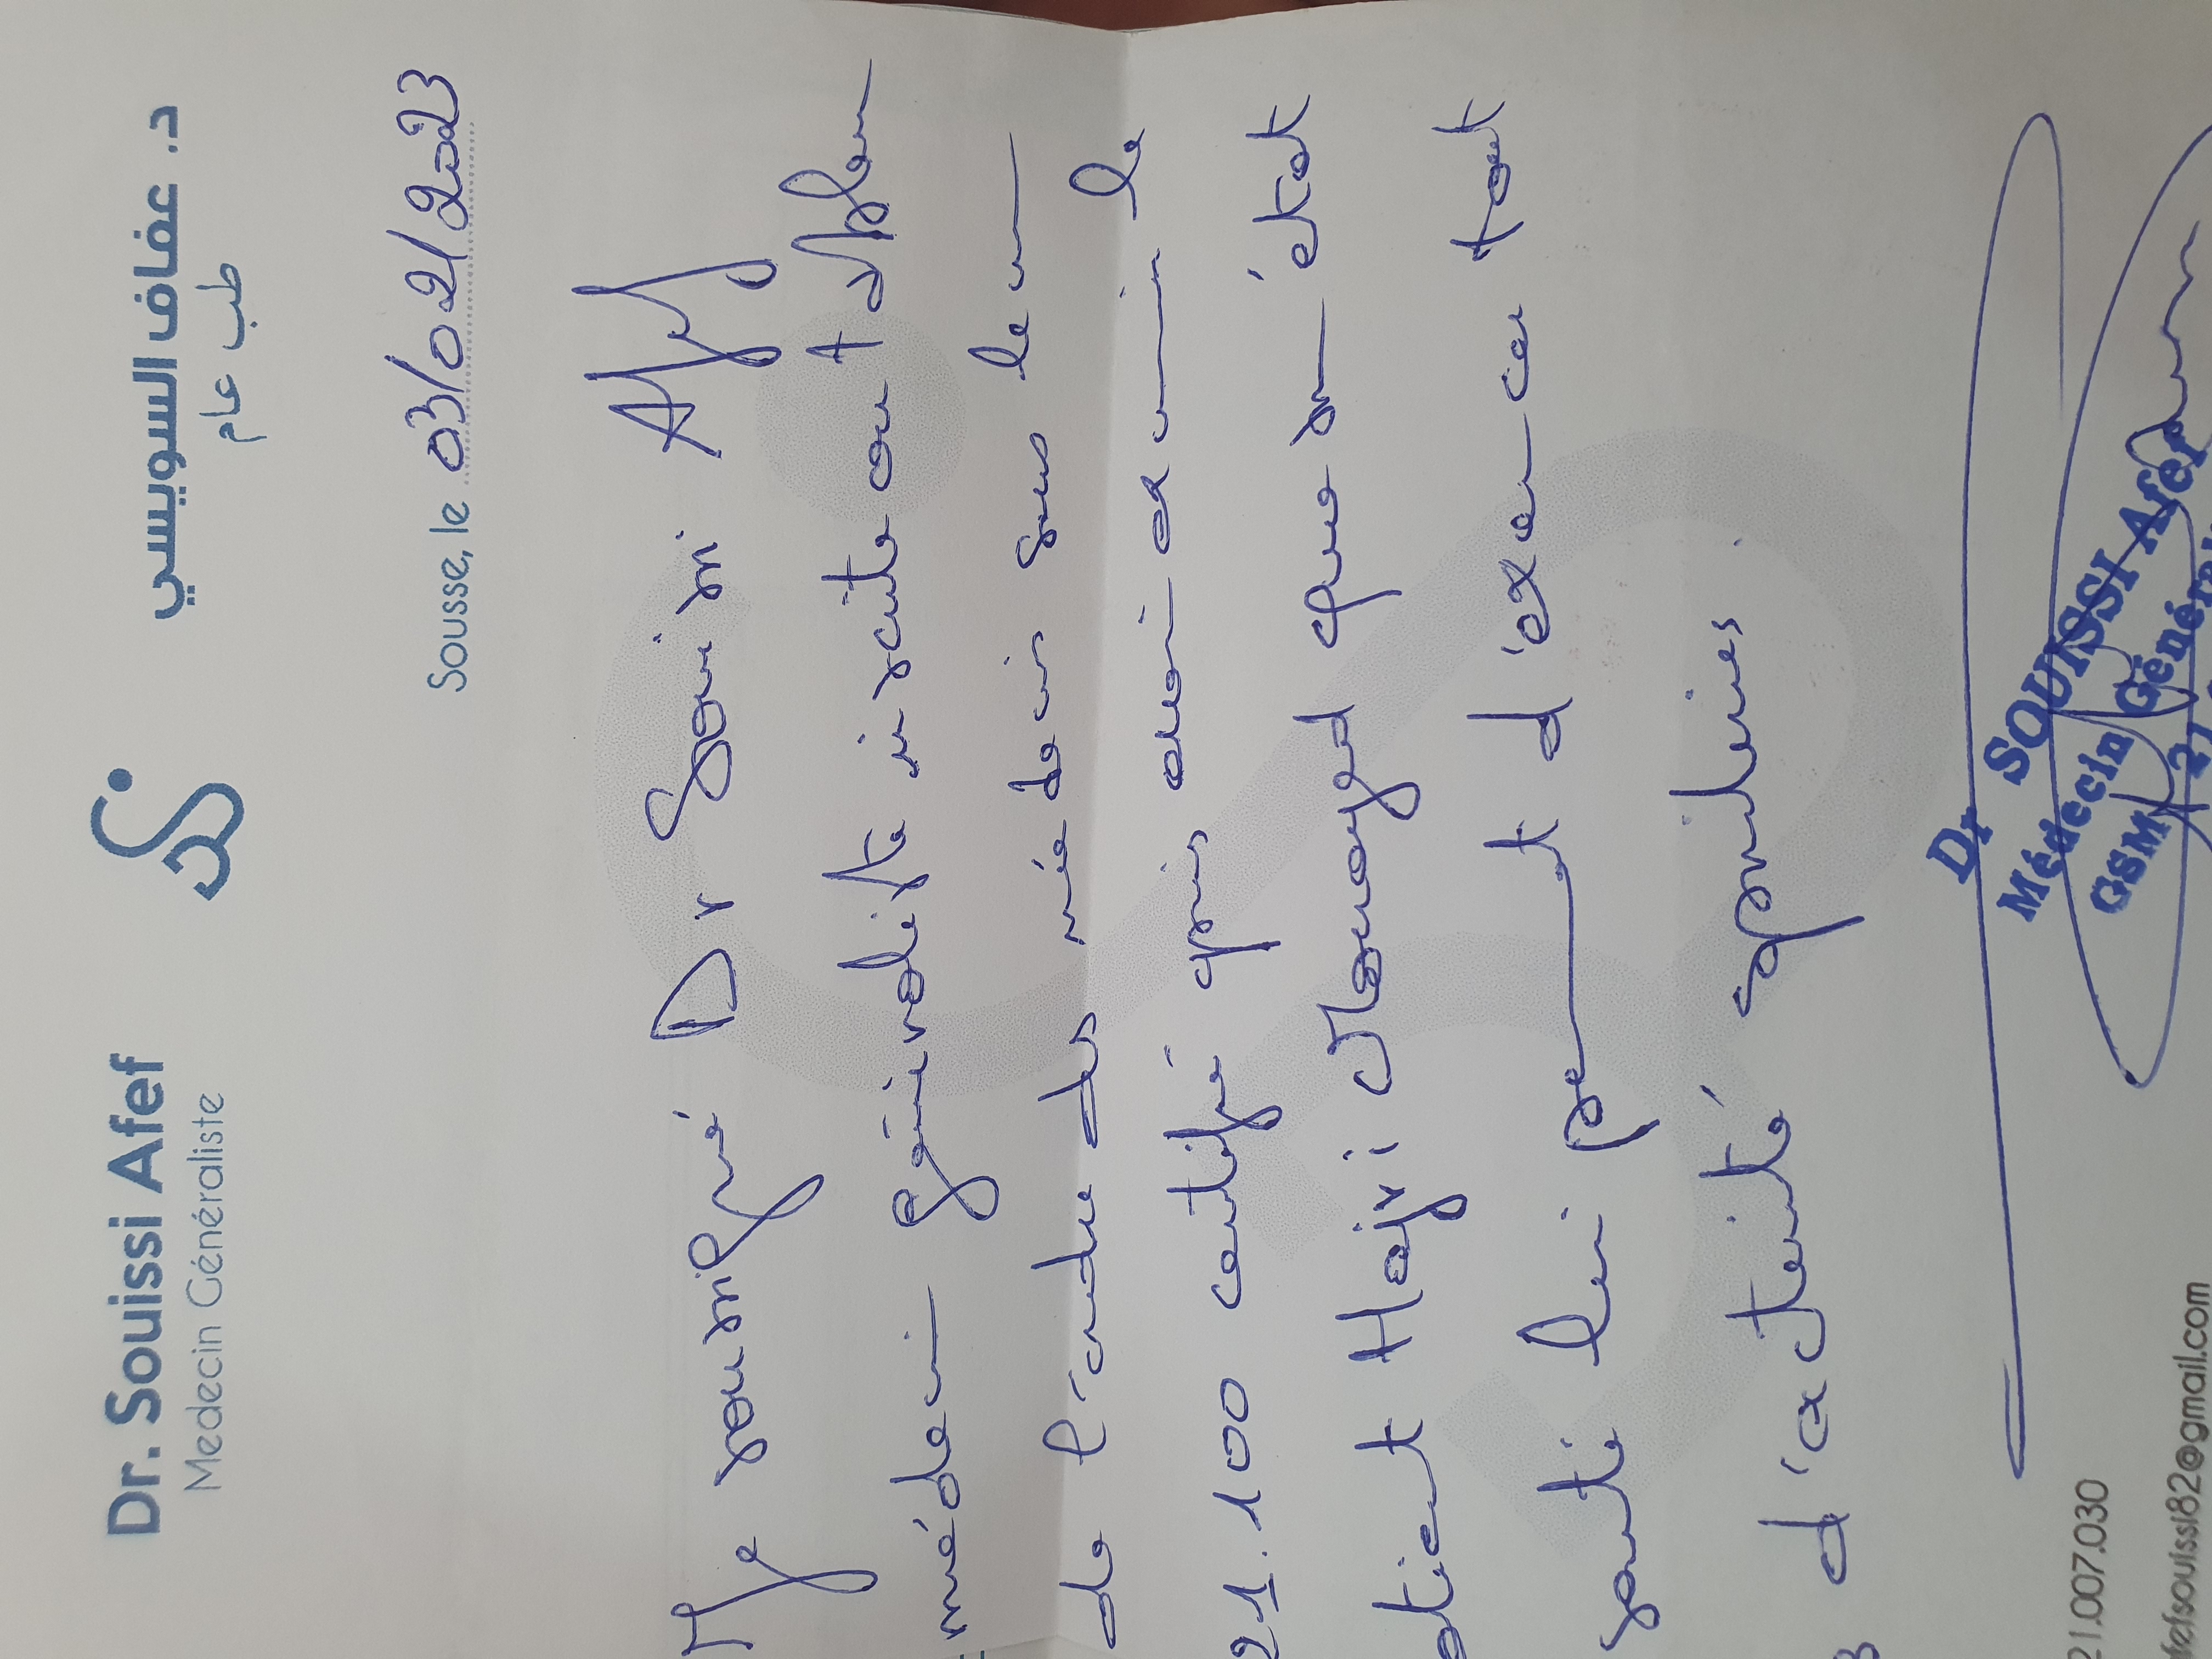 Dr. Souissi Afef
Medecin Généraliste
د. عفاف السويسي
طب عام
Sousse, le 03/02/2023
Je soussigné Dr Souissi Afef
médecin généraliste inscrite au tableau
de l'ordre des médecins sous le n
21.100 certifie avoir examiné le
patient Hajri que son état
santé lui permet d'exercer tout
d'activité
Dr SOUISSI Afef
Médecin
GSM
21.007.030
fefsouissi82@gmail.com